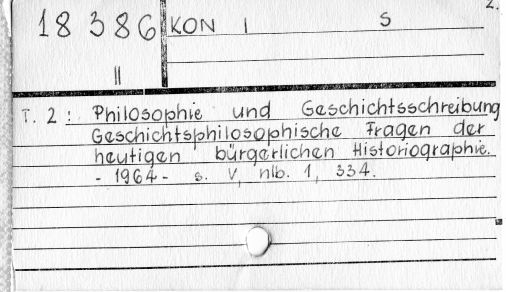 2.
18 386 KON I S
II
T. 2: Philosophie und Geschichtsschreibung
Geschichtsphilosophische Fragen der
heutigen bürgerlichen Historiographie.
- 1964 - s. V, nlb. 1, 334.